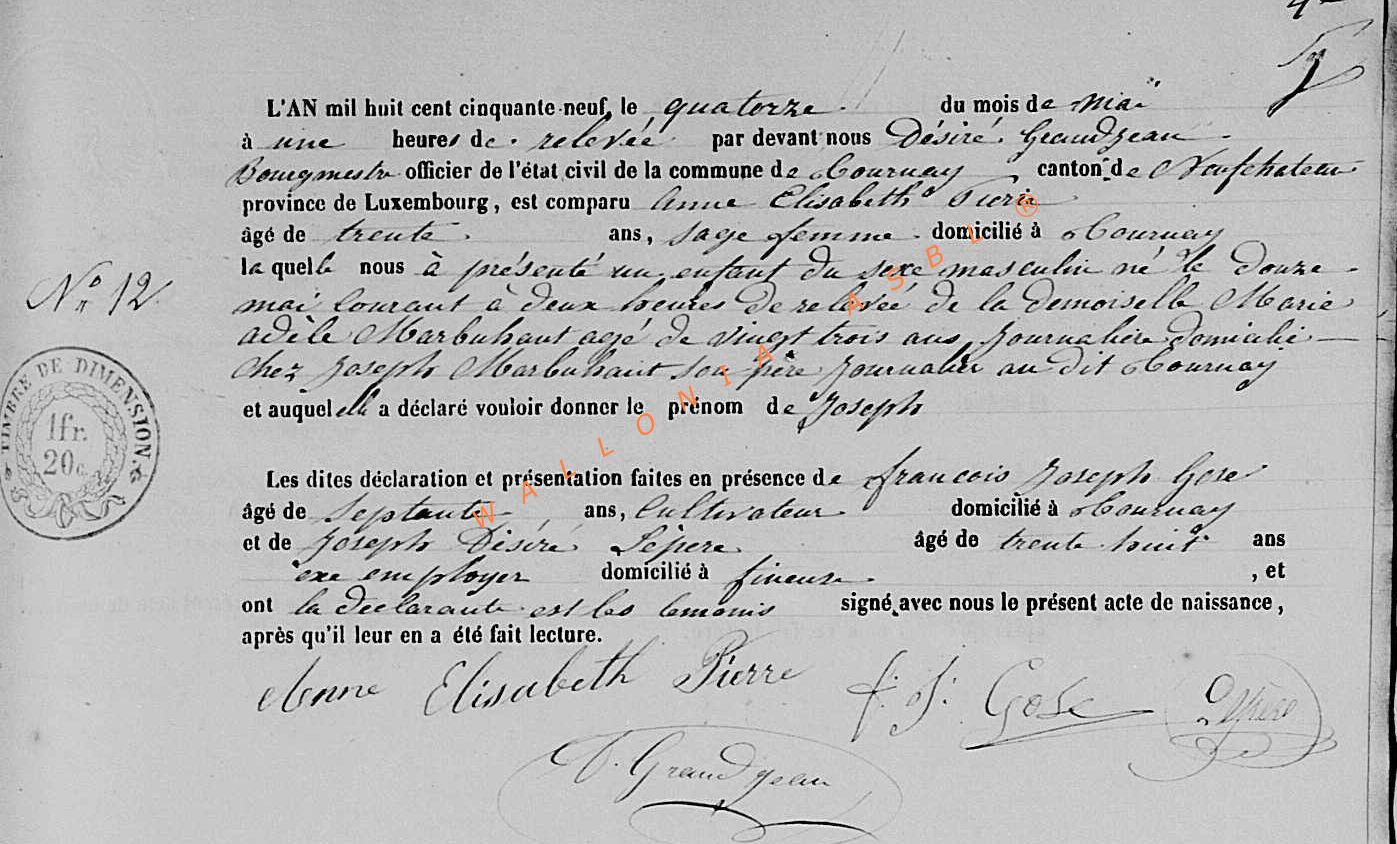 L'AN mil huit cent cinquante-neuf, le quatorze du mois de mai
à une heures de relevée par devant nous Désiré Grandjean
Bourgmestre officier de l'état civil de la commune de Tournay canton de Neufchateau
province de Luxembourg, est comparu Anne Elisabeth Pierre
âgé de trente ans, sage femme domicilié à Tournay
la quelle nous à présenté un enfant du sexe masculin né le douze
No 12.
mai courant à deux heures de relevée de la demoiselle Marie
adèle Marbuhant agé de vingt trois ans Journalière domicilié
chez Joseph Marbuhant son père Journalier au dit Tournay
et auquel elle a déclaré vouloir donner le prénom de Joseph
TIMBRE DE DIMENSION.
1fr.
20c.
Les dites déclaration et présentation faites en présence de francois Joseph Gose
âgé de Septante ans, Cultivateur domicilié à Tournay
et de Joseph Désiré Lépere âgé de trente huit ans
exe employer domicilié à fineuse, et
ont la déclarante est les temonis signé avec nous le présent acte de naissance,
après qu'il leur en a été fait lecture.
Anne Elisabeth Pierre f. J. Gose
D. Grandjean
WALLONIA ASBL ®